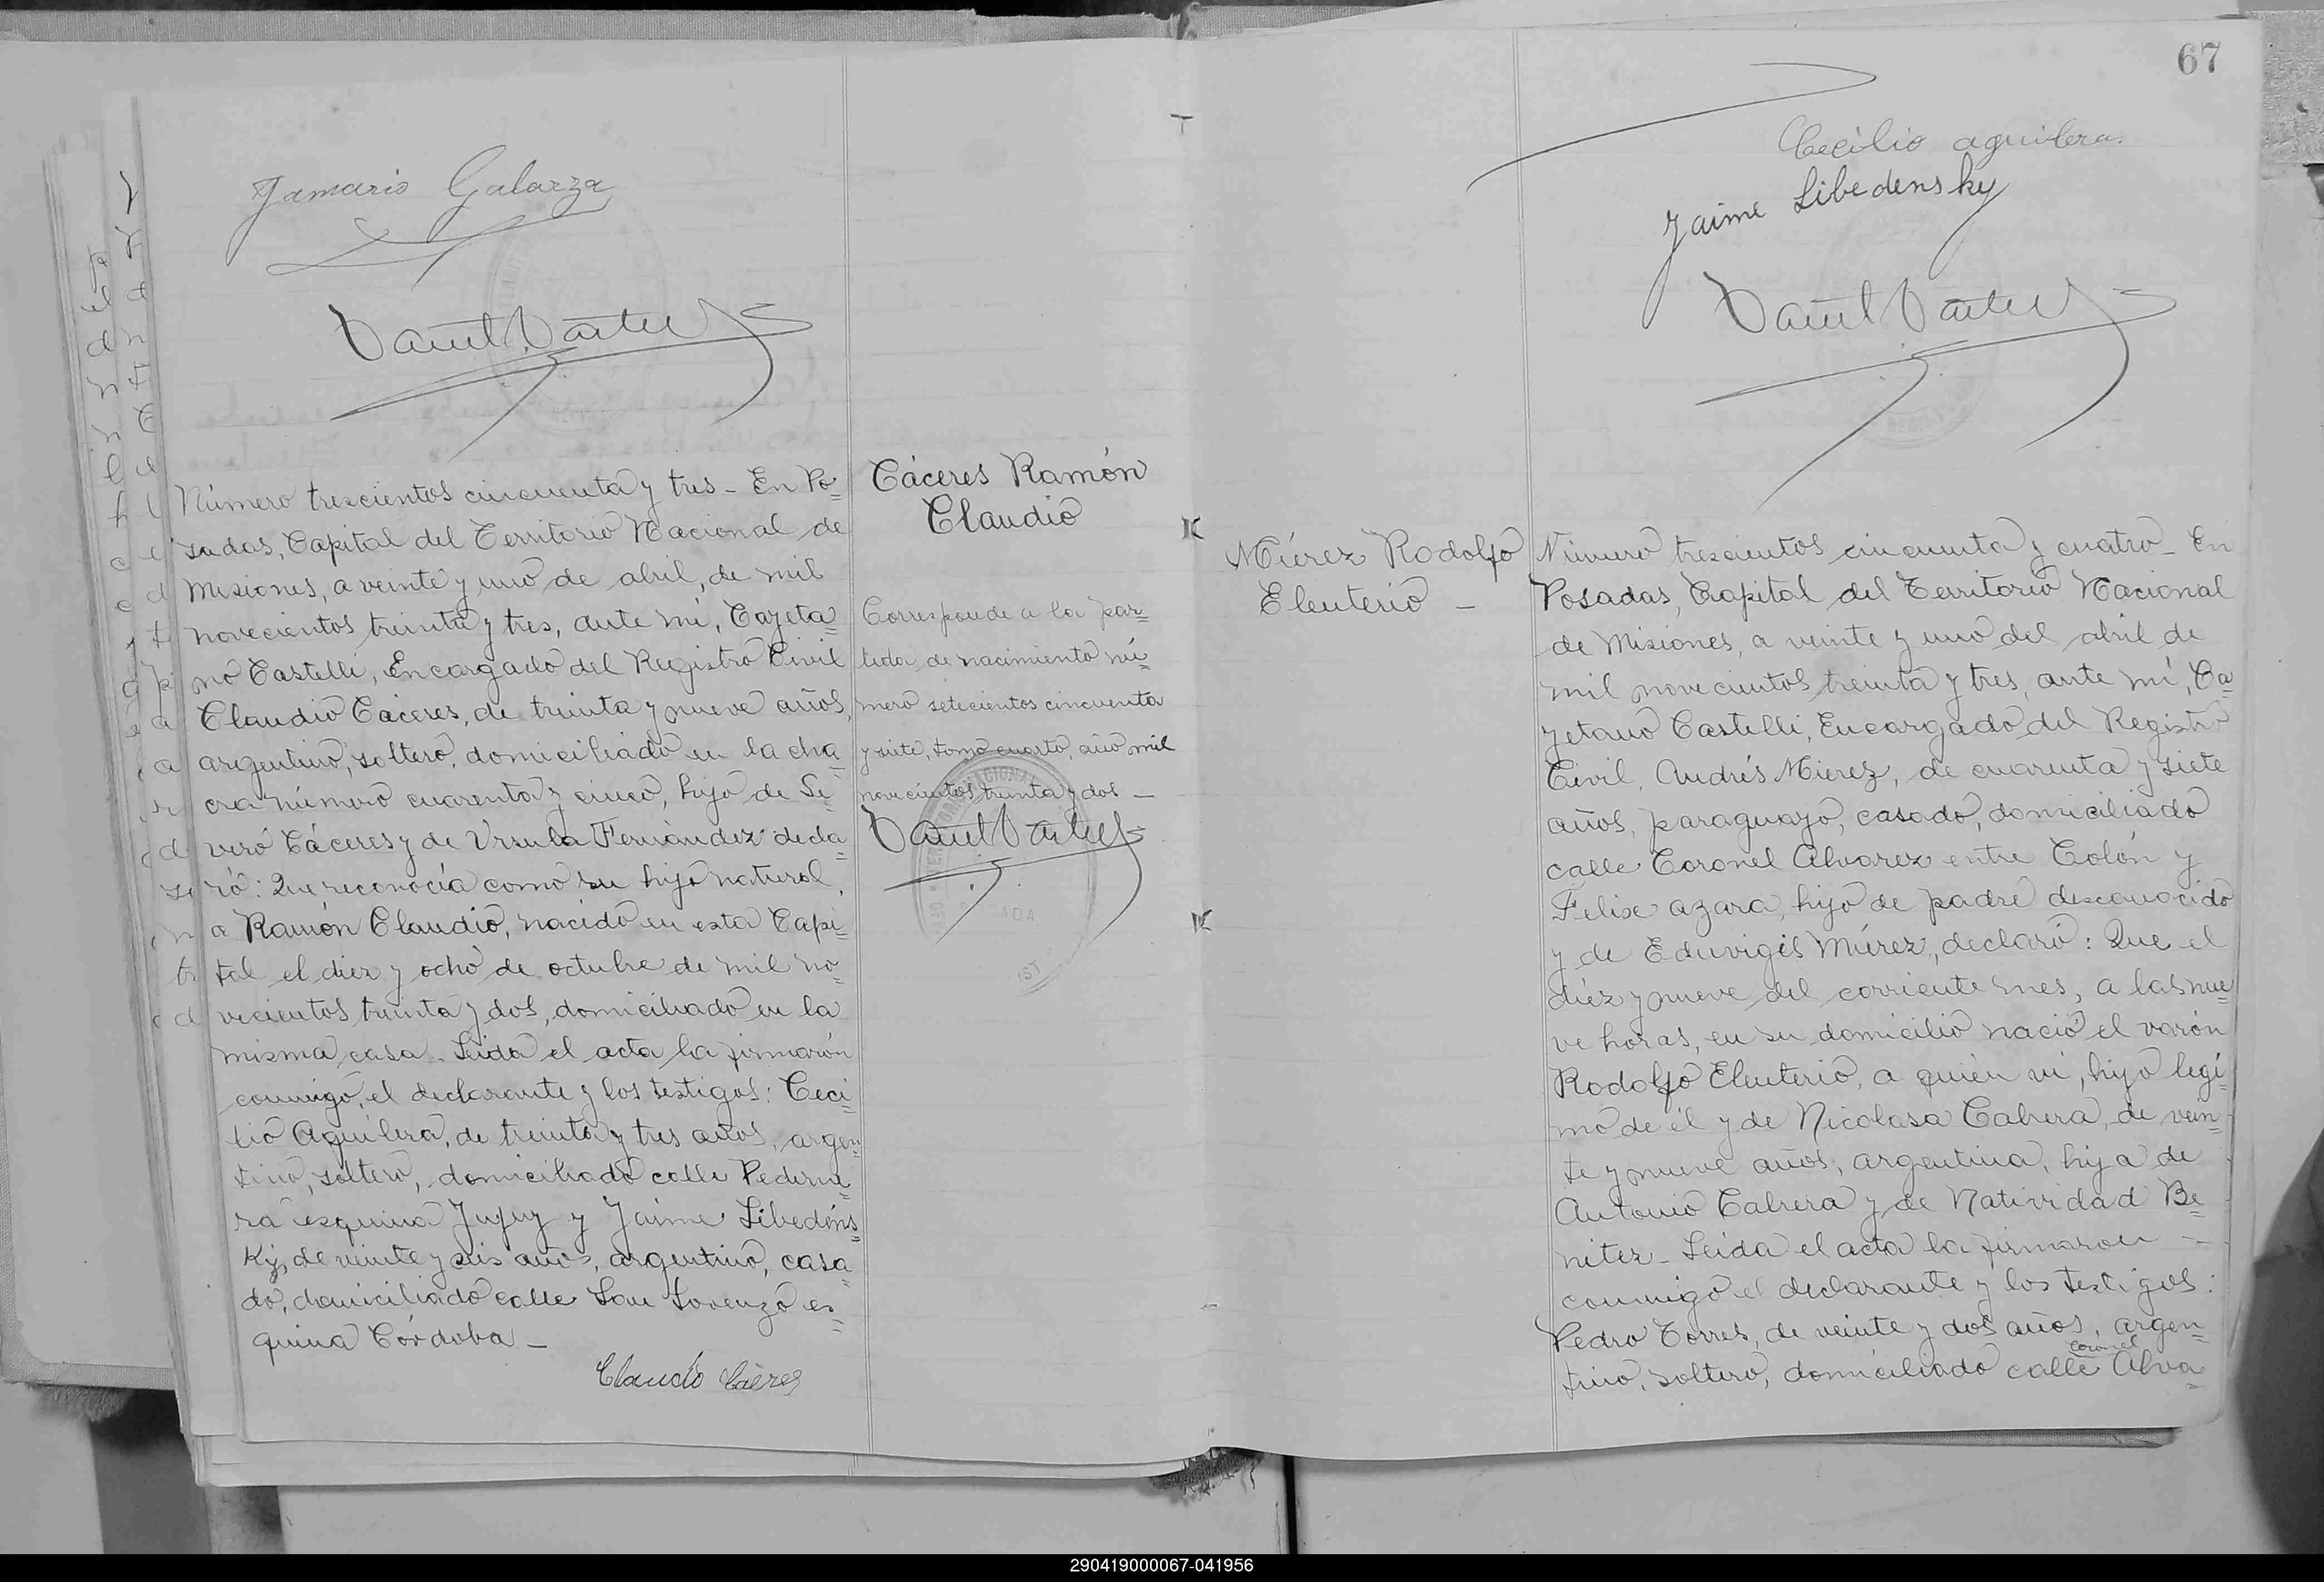 Jamario Galarza
Número trescientos cincuenta y tres - En Po=
sadas, Capital del Territorio Nacional de
Misiones, a veinte y uno de abril, de mil
novecientos treinta y tres, ante mí, Cayeta=
no Castelli, Encargado del Registro Civil
Claudio Cáceres, de treinta y nueve años,
argentino, soltero, domiciliado en la cha=
cra número cuarenta y cinco, hijo de Se=
vero Cáceres y de Ursula Fernández decla=
ró: Que reconocía como su hijo natural,
a Ramón Claudio, nacido en esta Capi=
tal el diez y ocho de octubre de mil no=
vecientos treinta y dos, domiciliado en la
misma casa. Leida el acta la firmarón
conmigo, el declarante y los testigos: Ceci=
lio Aguilera, de treinta y tres años, argen=
tino, soltero, domiciliado calle Pederne=
ra esquina Jujuy y Jaime Libedéns=
ky, de veinte y seis años, argentino, casa=
do, domiciliado calle San Lorenzo es=
quina Córdoba -
Claudio Cáeres
Cáceres Ramón
Claudio
Corresponde a la par=
tida de nacimiento nú=
mero setecientos cincuenta
y siete, tomo cuarto, año mil
novecientos treinta y dos -
67
Cecilio aguilera
Jaime Libedensky
Miérez Rodolfo
Eleuterio -
Número trescientos cincuenta y cuatro - En
Posadas, Capital del Territorio Nacional
de Misiones, a veinte y uno del abril de
mil novecientos treinta y tres, ante mí, Ca=
yetano Castelli, Encargado del Registro
Civil, Andrés Mierez, de cuarenta y siete
años, paraguayo, casado, domiciliado
calle Coronel Alvarez entre Colón y
Felix azara, hijo de padre desconocido
y de Eduvigis Miérez, declaró: Que el
diéz y nueve del corriente mes, a las nue=
ve horas, en su domicilio nació el varón
Rodolfo Eleuterio, a quién ví, hijo legí=
mo de él y de Nicolasa Cabrera, de vein=
te y nueve años, argentina, hija de
Antonio Cabrera y de Natividad Be=
nitez - Leida el acta la firmaron =
conmigo el declarante y los testigos:
Pedro Torres, de veinte y dos años, argen=
tino, soltero, domiciliado calle Coronel Alva=
290419000067-041956